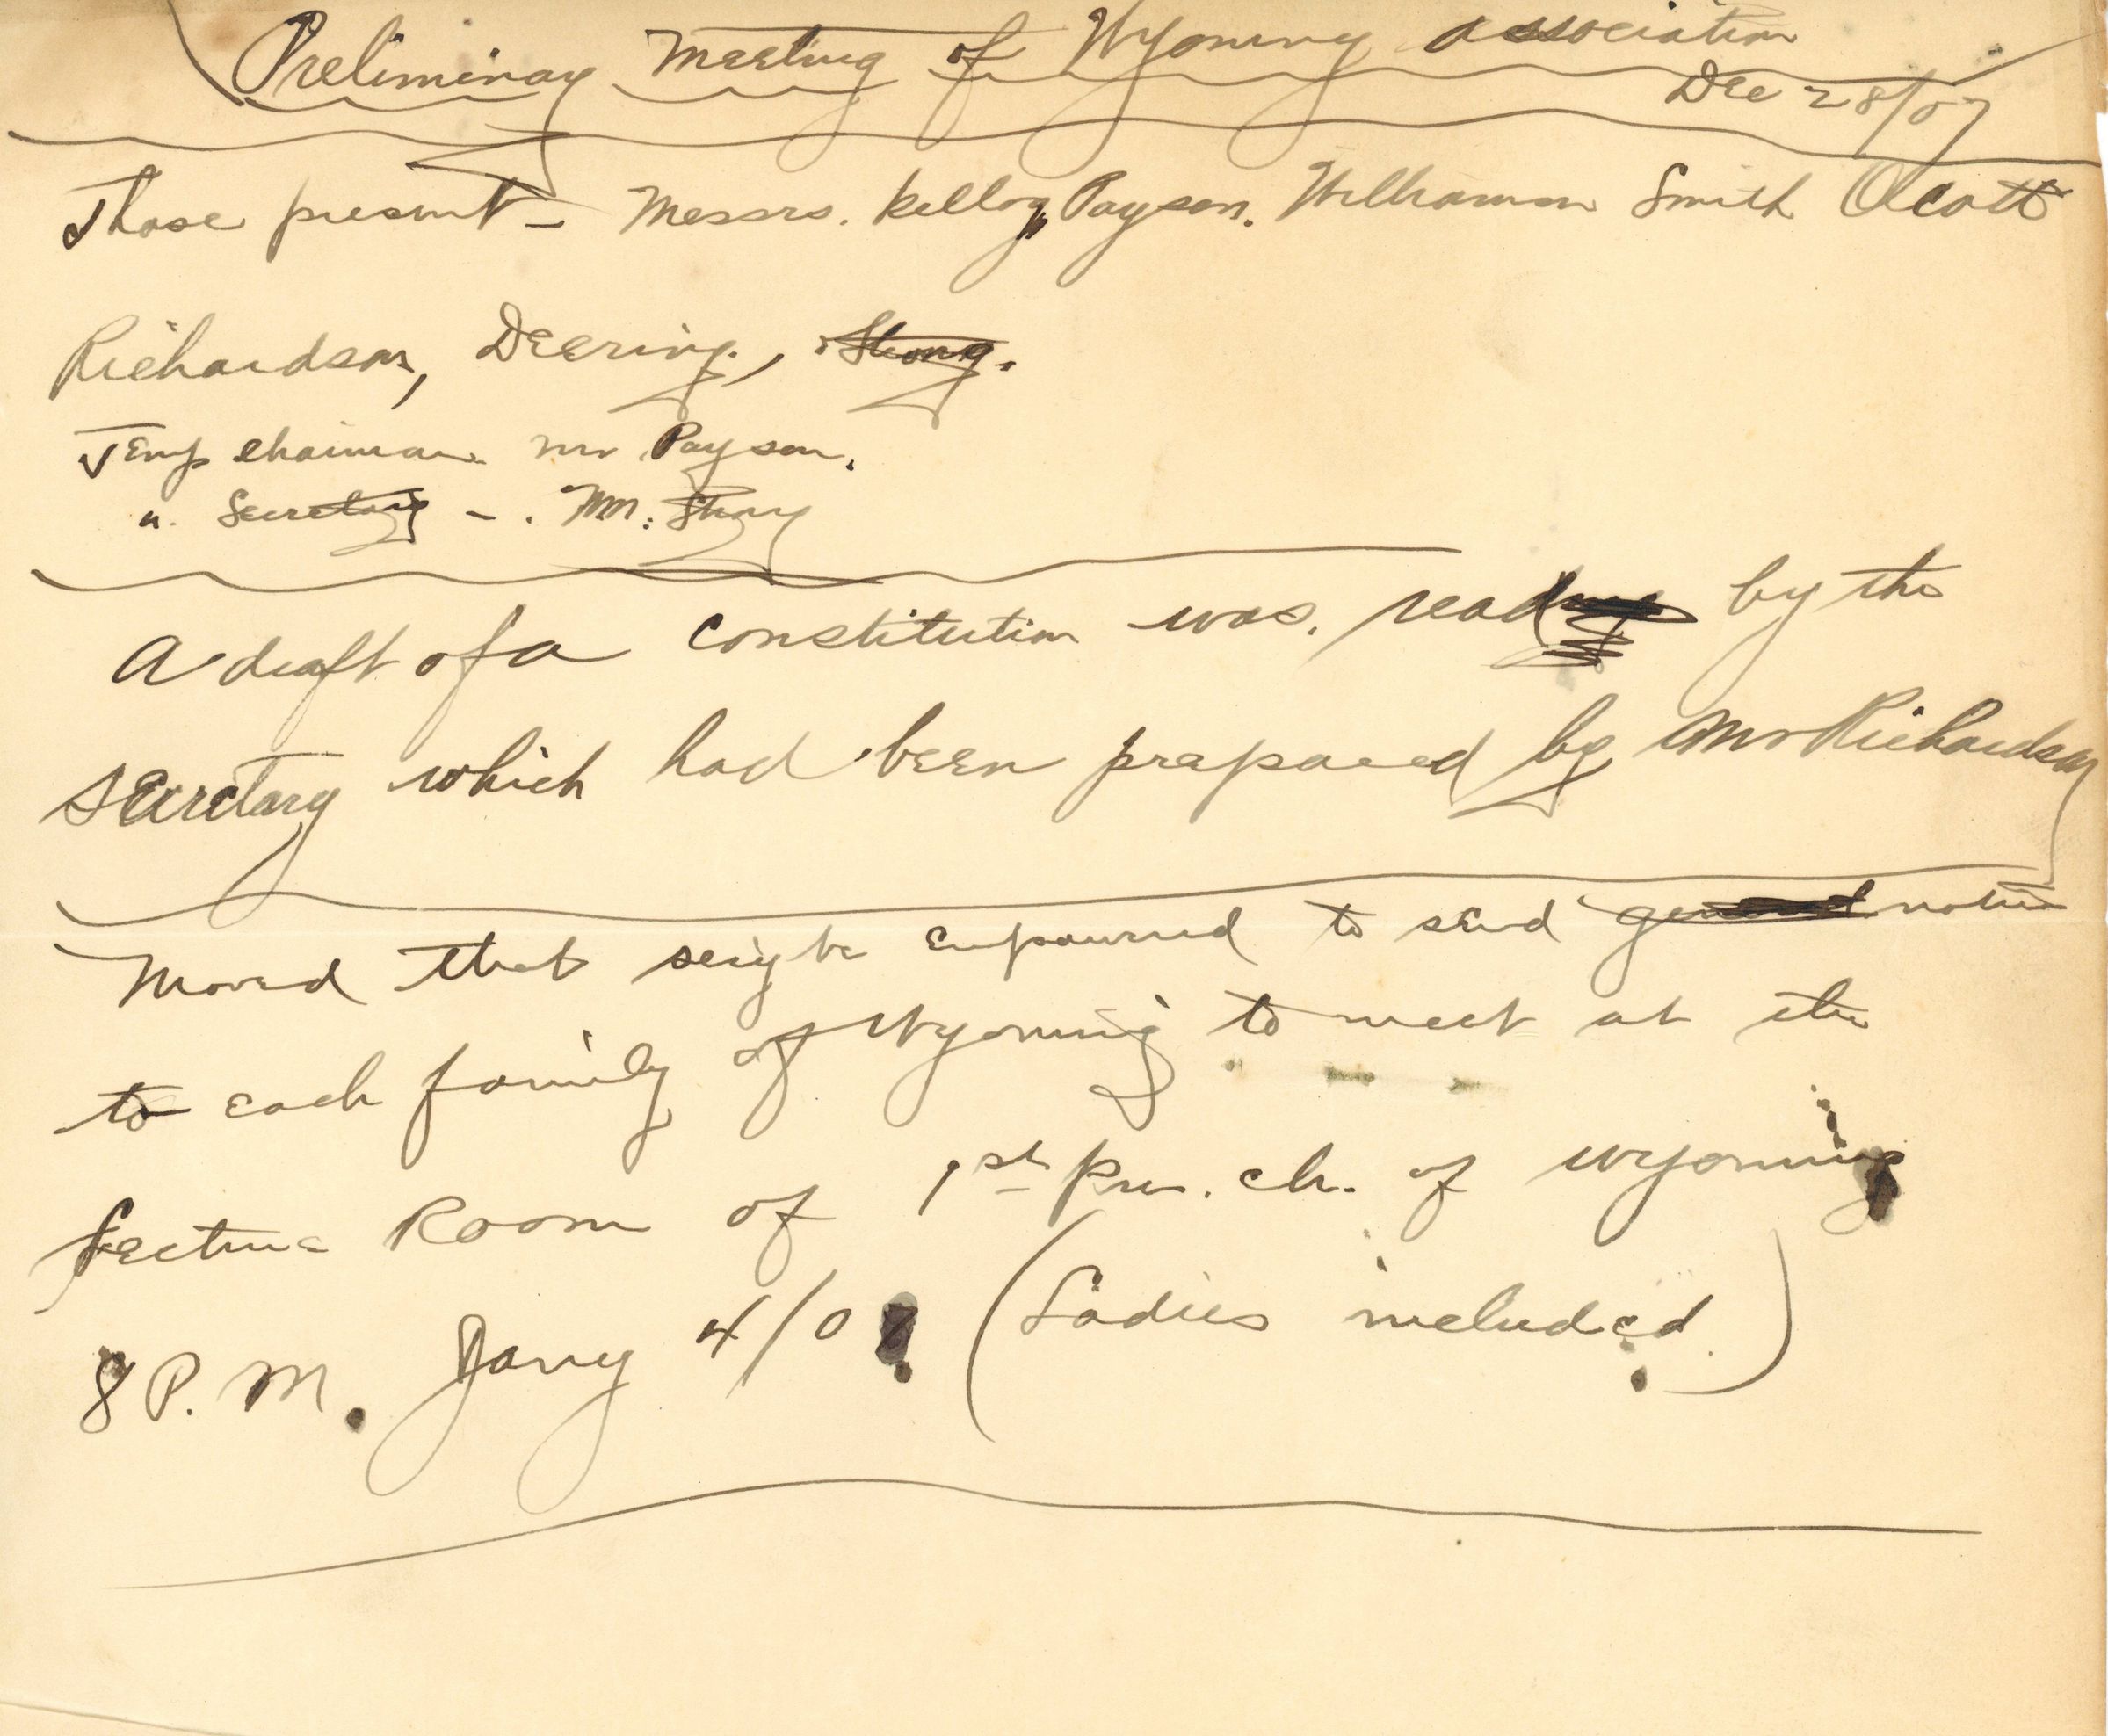 Preliminary Meeting of Wyoming Association
Dec 28/07
Those present - Messrs. Kellogg, Payson, Williamson Smith Olcott
Richardson, Deering, Strong.
Temp Chairman Mr Payson.
" Secretary - . Mr. Strong
A draft of a constitution was, read by the
secretary which had been prepared by Mr Richardson
Moved that secy be empowered to send notice
to each family of Wyoming to meet at the
Lecture Room of 1st Pres. ch. of Wyoming
8 P.M. Jany 4/0 (Ladies included.)